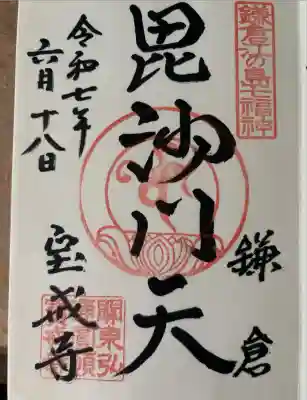 鎌倉江の島七福神
鎌倉
毘沙門天
令和七年
六月十八日
宝戒寺